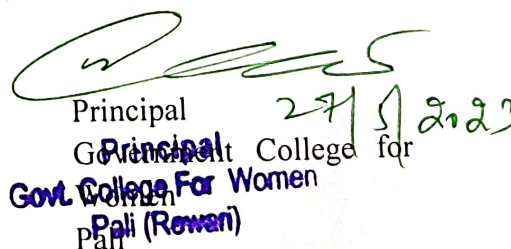 Principal
27/5/2023
Government College for
Women
Pali
Principal
Govt. College For Women
Pali (Rewari)